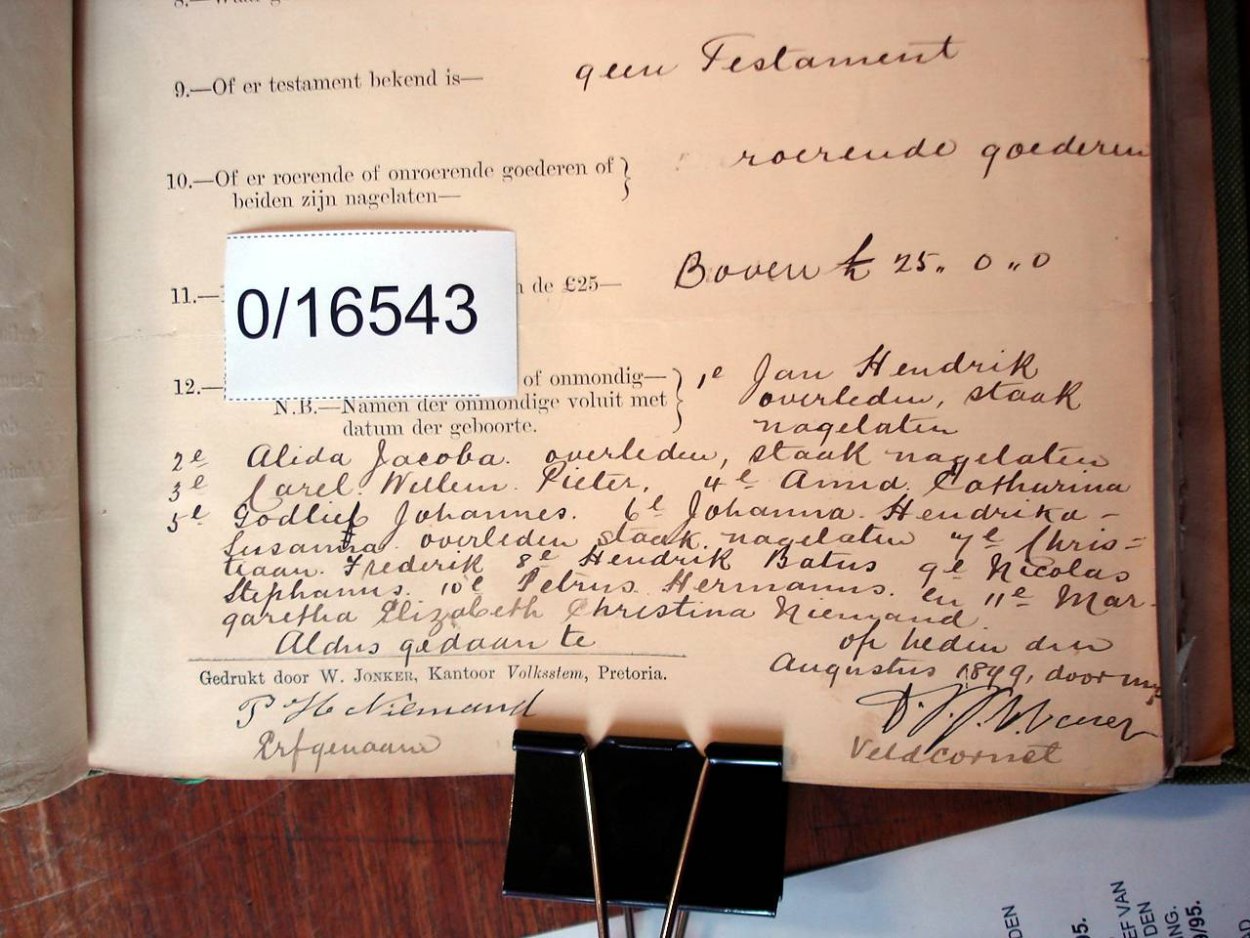 9.—Of er testament bekend is— geen Testament
10.—Of er roerende of onroerende goederen of } roerende goederen
beiden zijn nagelaten—
11.— de £25— Boven £ 25 „ 0 „ 0
0/16543
12.— of onmondig— } 1e Jan Hendrik
N.B.—Namen der onmondige voluit met overleden, staak
datum der geboorte. nagelaten
2e Alida Jacoba. overleden, staak nagelaten
3e Carel. Willem. Pieter, 4e Anna. Catharina
5e Godlief Johannes. 6e Johanna. Hendrika -
Susanna. overleden staak nagelaten 7e Chris=
tiaan. Frederik 8e Hendrik Batus 9e Nicolas
Stephanus. 10e Petrus Hermanus. en 11e Mar-
garetha Elizabeth Christina Niemand.
Aldus gedaan te op heden den
Augustus 1899, door mij
Gedrukt door W. Jonker, Kantoor Volksstem, Pretoria.
P H Niemand
Erfgenaam Veldcornet
DEN
5.
EF VAN
DEN
NG.
/95.